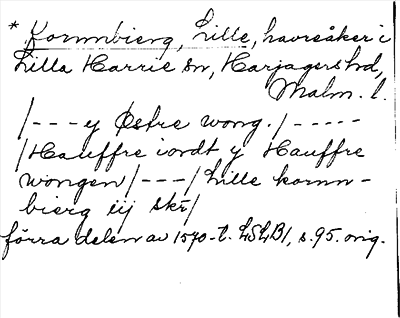 * Kornnbierg, Lille, havreåker i
Lilla Harrie sn, Harjagers hd,
Malm. l.
/---y Østre wong./-----
/Hauffre iordt y Hauffre
wongen/---/Lille kornn-
bierg iij skr/
förra delen av 1570-t. LSLB1, s.95. orig.